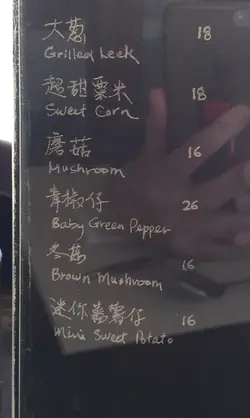 大葱 18
Grilled Leek
超甜粟米 18
Sweet Corn
蘑菇 16
Mushroom
青椒仔 26
Baby Green Pepper
冬菇 16
Brown Mushroom
迷你番薯仔 16
Mini Sweet Potato